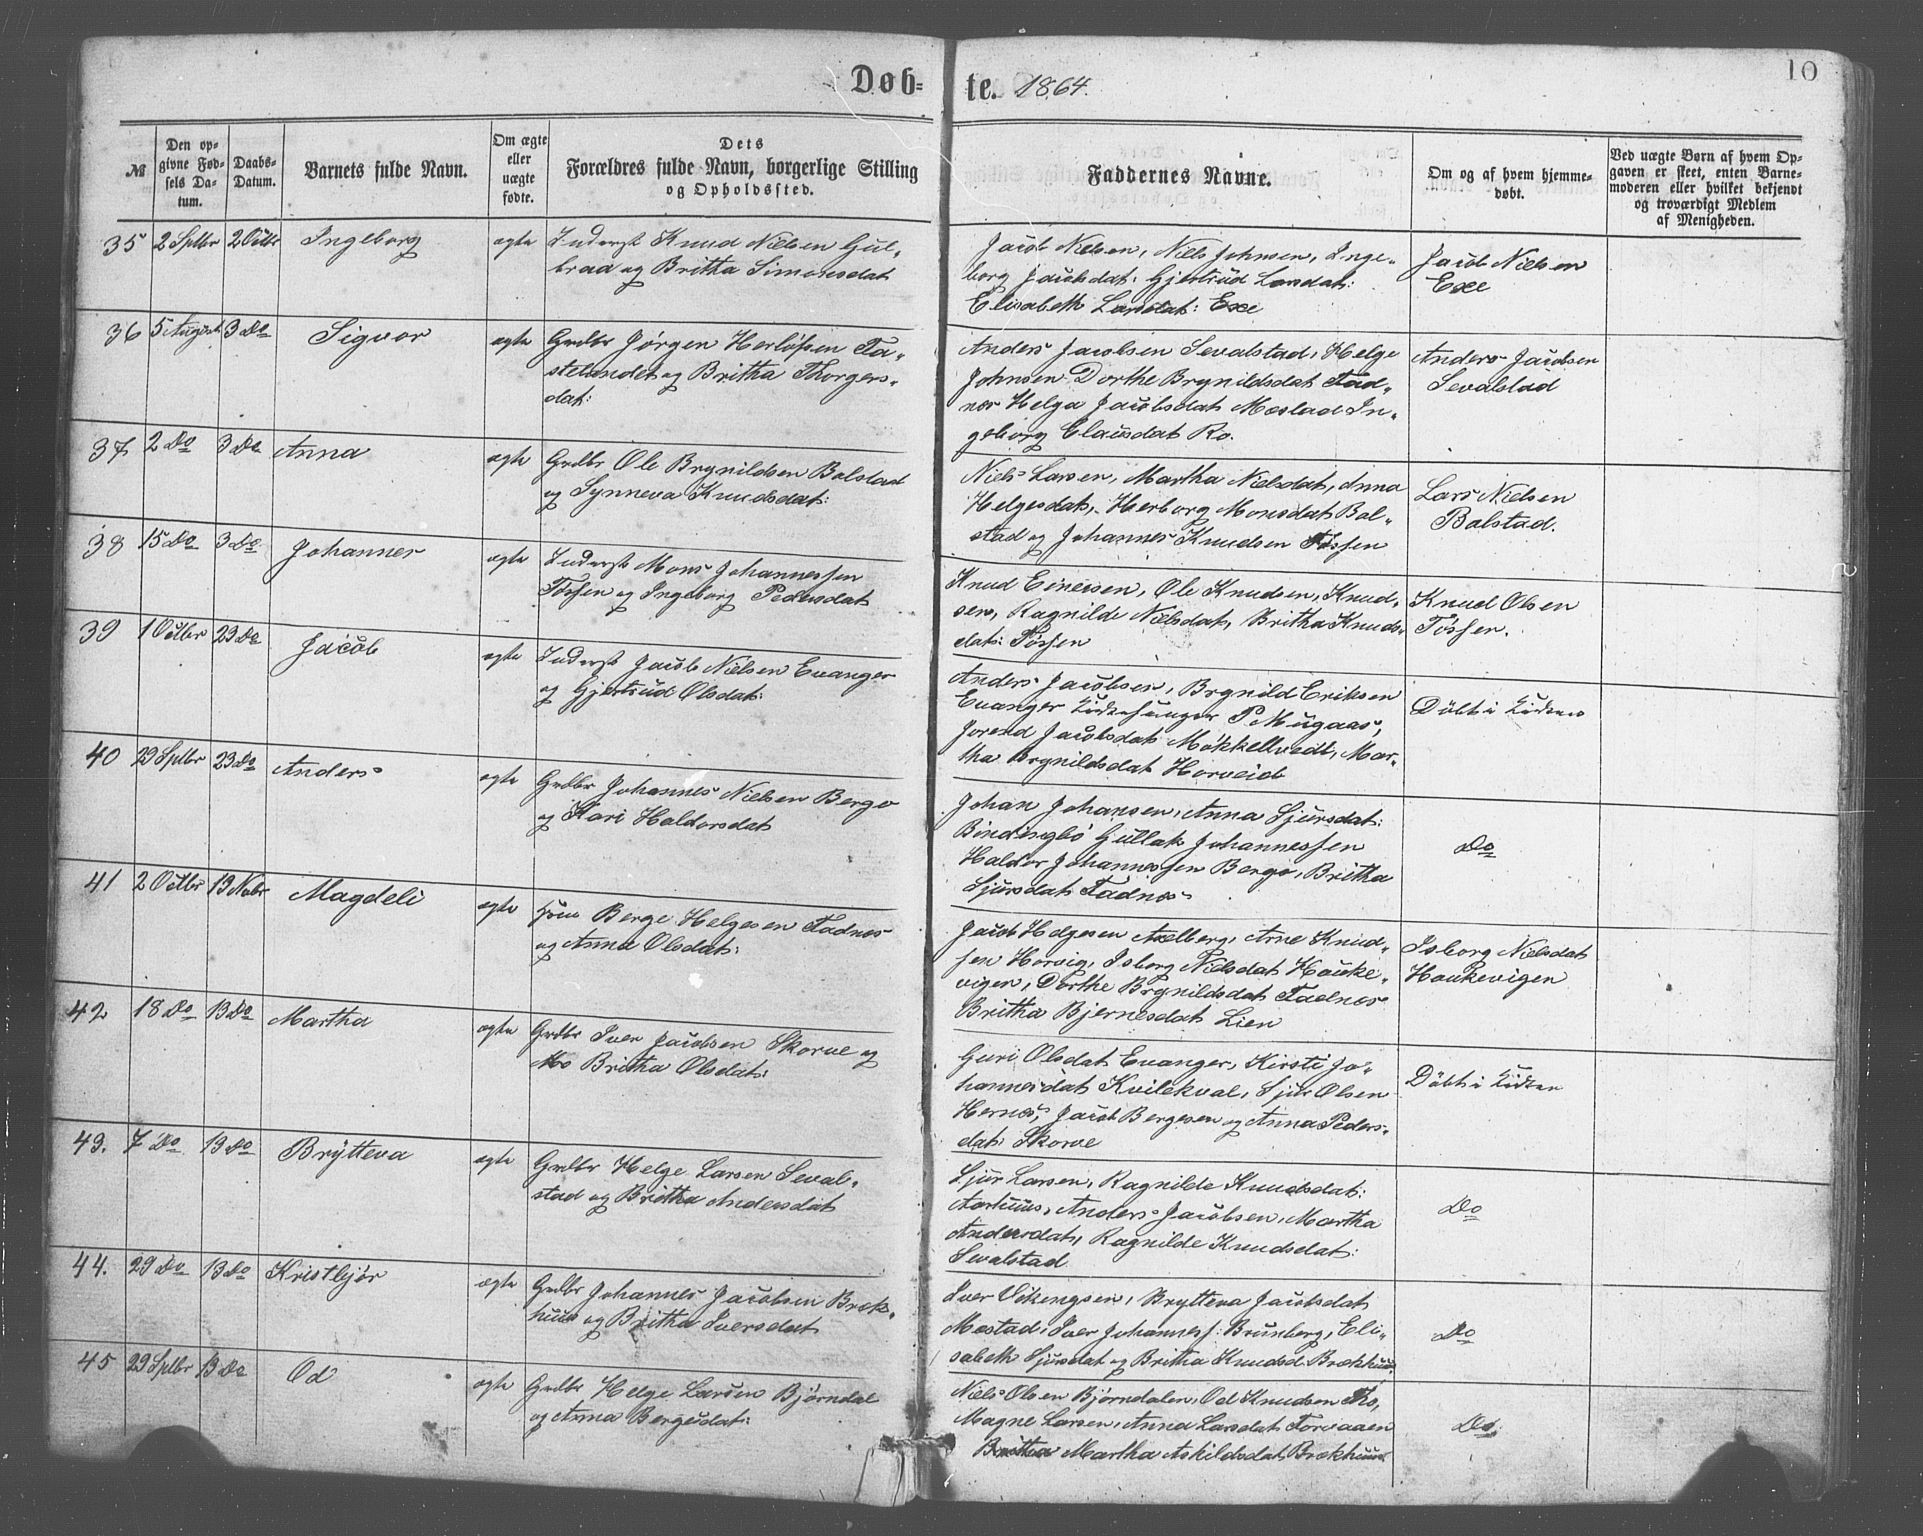 Døb=
te. 1864.
10
№
Den op-
givne Fød-
sels Da-
tum.
Daabs-
Datum.
Barnets fulde Navn.
Om ægte
eller
uægte
fødte.
Dets
Forældres fulde Navn, borgerlige Stilling
og Opholdssted.
Faddernes Navne.
Om og af hvem hjemme-
døbt.
Ved uægte Børn af hvem Op-
gaven er skeet, enten Barne-
moderen eller hvilket bekjendt
og troværdigt Medlem
af Menigheden.
35 2 Sptbr 2 Octbr Ingeborg ægte Inderst Knud Nielsen Gul-
braa og Britha Simonsdat
Jacob Nielsen, Niels Johnsen, Inge-
borg Jacobsdat: Gjertrud Larsdat:
Elisabeth Larsdat: Exe
Jacob Nielsen
Exe
36 5 August 3 Do Sigvor ægte Grdbr Jørgen Herlofsen Ta-
stelandet og Britha Thorgers-
dat:
Anders Jacobsen Sevalstad, Helge
Johnsen Dorthe Brynildsdat Fad-
nes Helga Jacobsdat Mæstad In-
geborg Clausdat Ro.
Anders Jacobsen
Sevalstad
37 2 Do 3 Do Anna ægte Grdbr Ole Brynildsen Bolstad
og Synneva Knudsdat:
Niels Larsen, Martha Nielsdat, Anna
Helgesdat, Herborg Monsdat Bol-
stad og Johannes Knudsen Fossen
Lars Nielsen
Bolstad.
38 15 Do 3 Do Johannes ægte Inderst Mons Johannessen
Føssen og Ingeborg Pedersdat
Knud Einersen, Ole Knudsen, Knud-
sen, Ragnilde Nielsdat, Britha Knuds-
dat: Føssen
Knud Olsen
Føssen.
39 1 Octbr 23 Do Jacob ægte Inderst Jacob Nielsen Evanger
og Gjertrud Olsdat:
Anders Jacobsen, Brynild Eriksen
Evanger Kirkesanger P Mugaas,
Jorend Jacobsdat Møkkelvedt, Mar-
tha Brynildsdat Horveid
Døbt i Kirken
40 29 Sptbr 23 Do Anders ægte Grdbr Johannes Nielsen Berge
og Kari Haldorsdat
Johan Johansen, Anna Sjursdat:
Bindingbø Gullak Johannessen
Haldor Johannessen Berge, Britha
Sjursdat Fadnes
Do
41 2 Octbr 13 Nobr Magdeli ægte Berge Helgesen Fadnes
og Anna Olsdat:
Jacob Helgesen Axelberg, Arne Knud-
sen Horvig, Isborg Nielsdat Hauke-
vigen, Dorthe Brynildsdat Fadnes
Britha Bjernesdat Lien
Isborg Nielsdat
Haukevigen
42 18 Do 13 Do Martha ægte Grdbr Iver Jacobsen Skorve og
Britha Olsdat:
Guri Olsdat Evanger, Kirsti Jo-
hannesdat Kvilekval, Sjur Olsen
Hernes, Jacob Bergesen og Anna Peders-
dat: Skorve
Døbt i Kirken
43. 7 Do 13 Do Brytteva ægte Grdbr Helge Larsen Seval-
stad og Britha Andersdat
Sjur Larsen, Ragnilde Knudsdat:
Aarhuus, Anders Jacobsen, Martha
Andersdat, Ragnilde Knudsdat:
Sevalstad
Do
44. 29 Do 13 Do Kristbjør ægte Grdbr Johannes Jacobsen Bræk-
huus og Britha Iversdat
Iver Vikingsen, Brytteva Jacobsdat
Mæstad, Iver Johanness: Brunberg, Eli-
sabeth Sjursdat og Britha Knudsd. Brækhuus
Do
45 29 Sptbr 13 Do Od ægte Grdbr Helge Larsen Bjørndal
og Anna Bergesdat:
Niels Olsen Bjørndalen, Od Knudsen
Magne Larsen, Anna Larsdat
Britha Martha Askildsdat, Brækhuus
Do